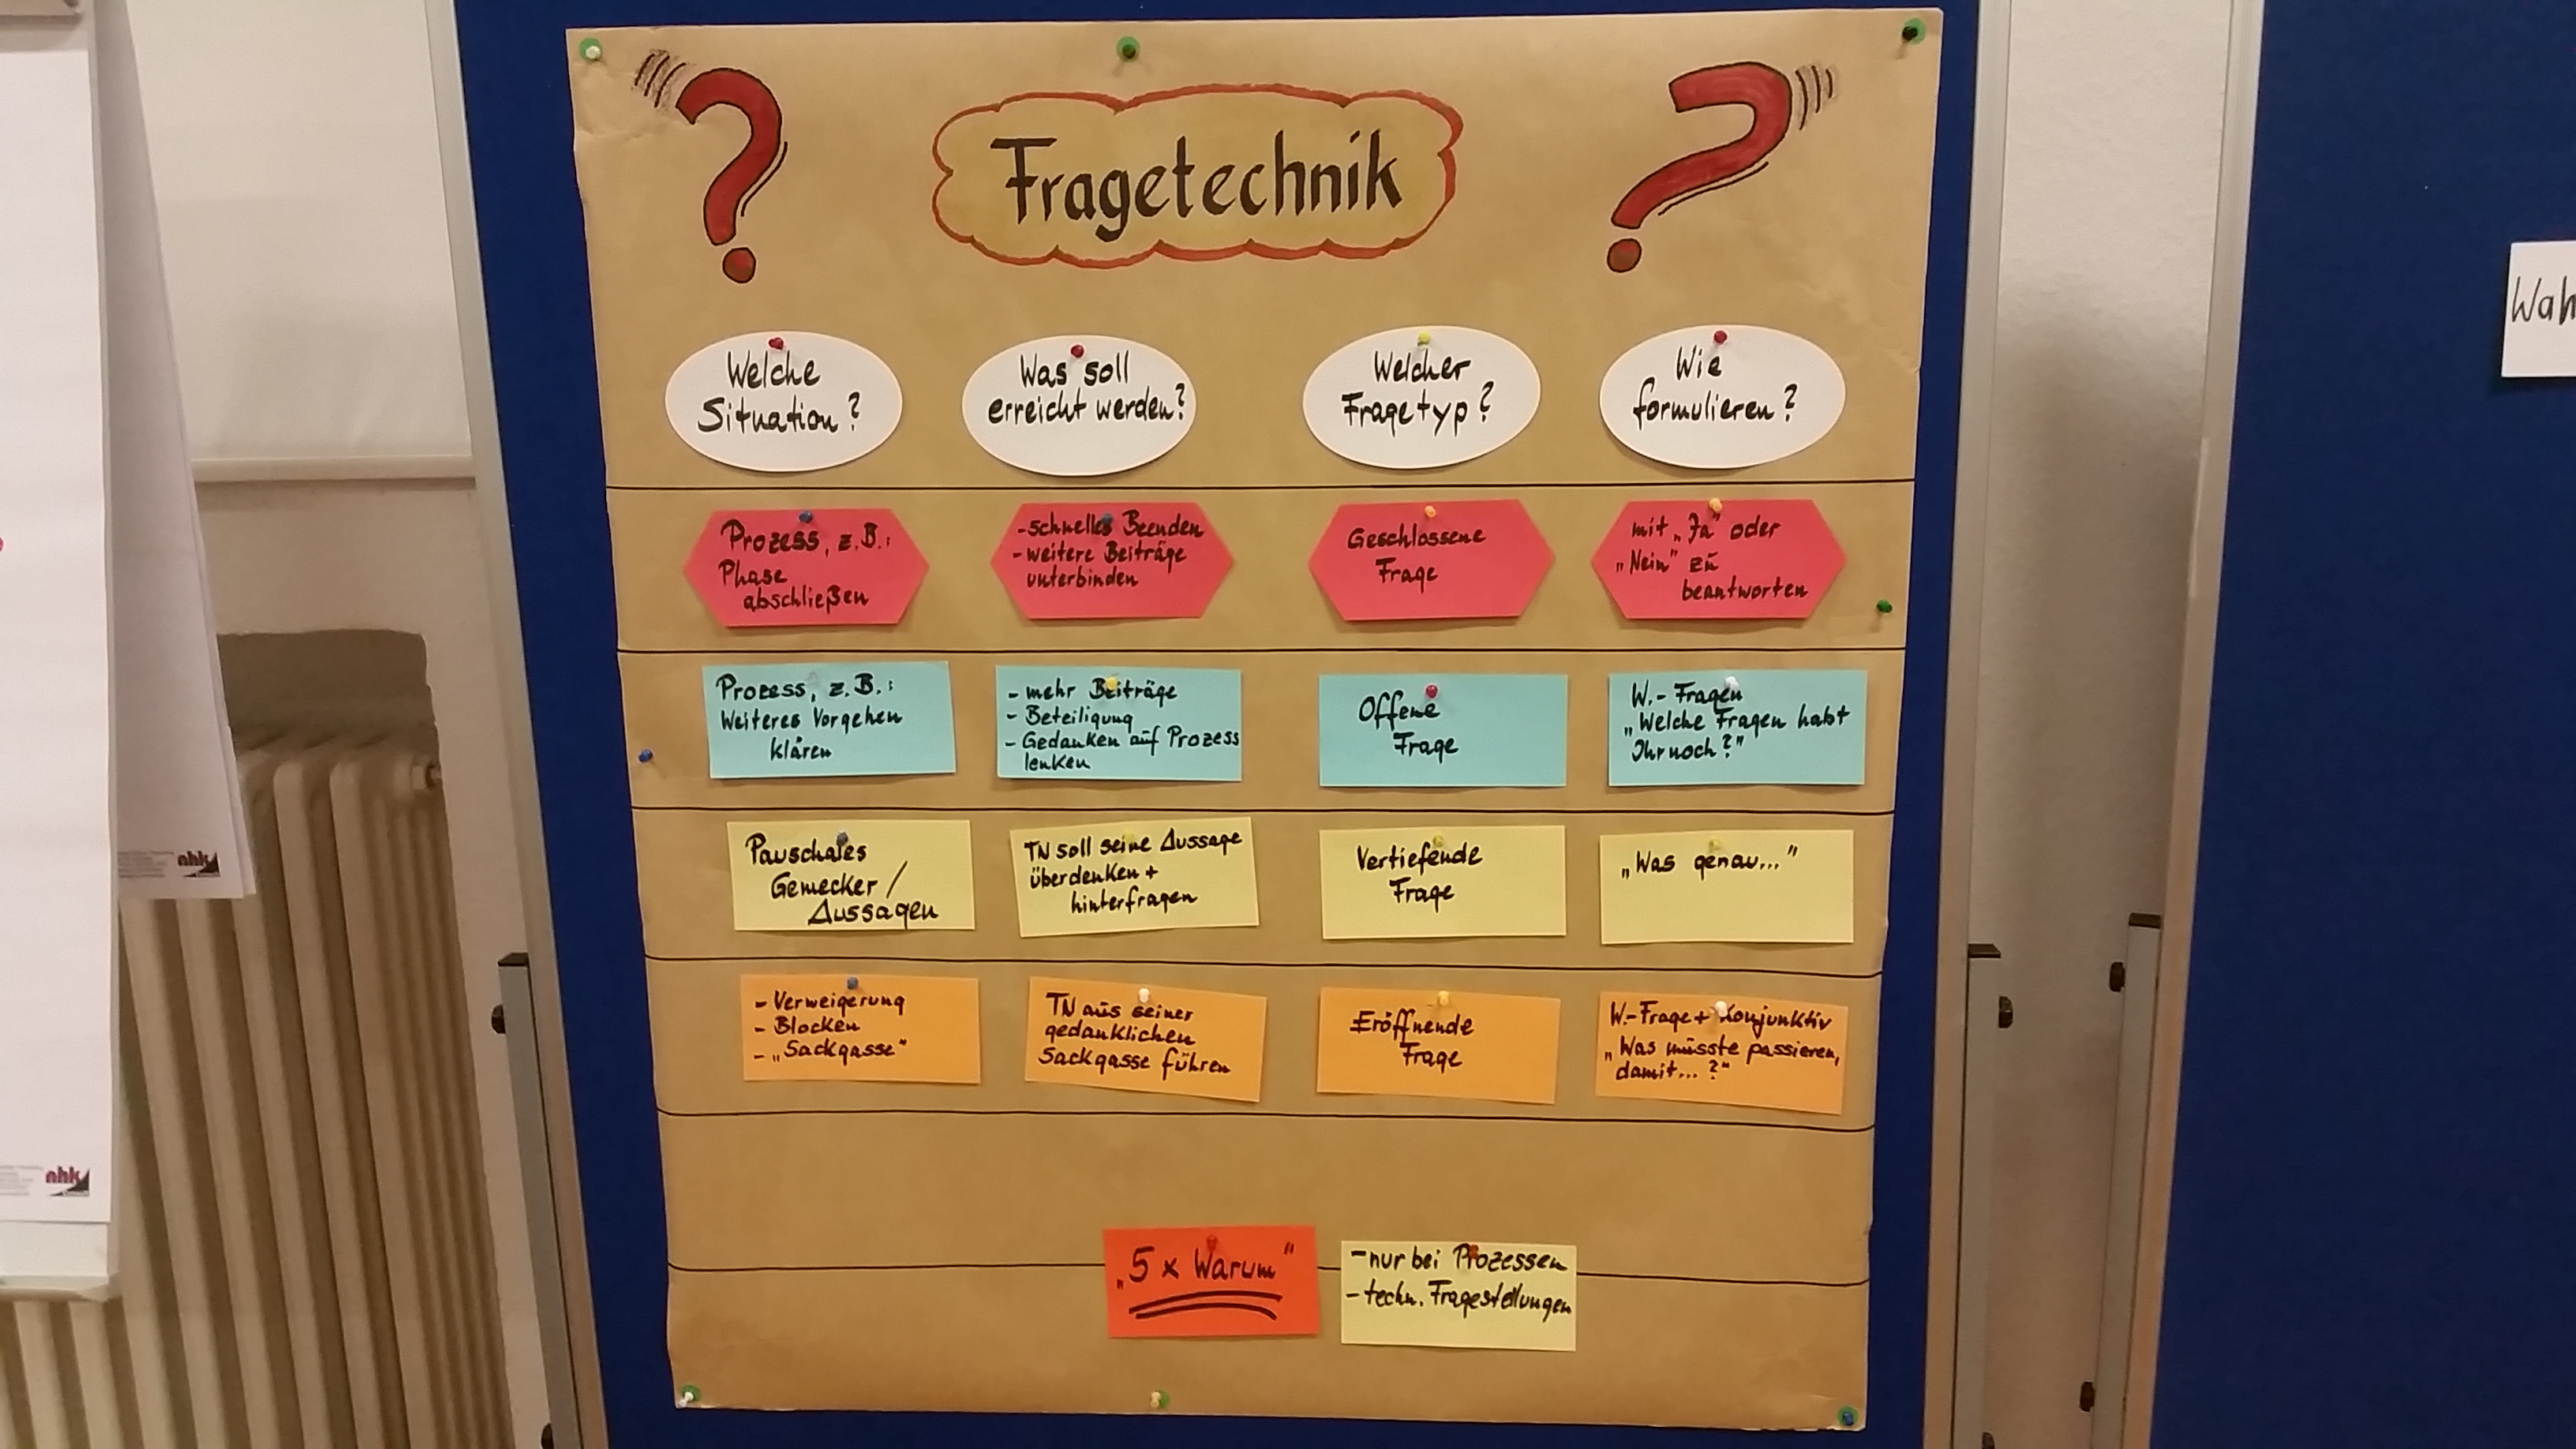 Fragetechnik
Welche
Situation?
Was soll
erreicht werden?
Welcher
Fragetyp?
Wie
formulieren?
Prozess, z.B.:
Phase
abschließen
- schnelles Beenden
- weitere Beiträge
unterbinden
Geschlossene
Frage
mit „Ja" oder
„Nein" zu
beantworten
Prozess, z.B.:
Weiteres Vorgehen
klären
- mehr Beiträge
- Beteiligung
- Gedanken auf Prozess
lenken
Offene
Frage
W.- Fragen
„Welche Fragen habt
Ihr noch?"
Pauschales
Gemecker /
Aussagen
TN soll seine Aussage
überdenken +
hinterfragen
Vertiefende
Frage
„Was genau..."
- Verweigerung
- Blocken
- „Sackgasse"
TN aus seiner
gedanklichen
Sackgasse führen
Eröffnende
Frage
W.-Frage + Konjunktiv
„Was müsste passieren,
damit... ?"
„5 x Warum"
- nur bei Prozessen
- techn. Fragestellungen
Wah
nhk
nhk